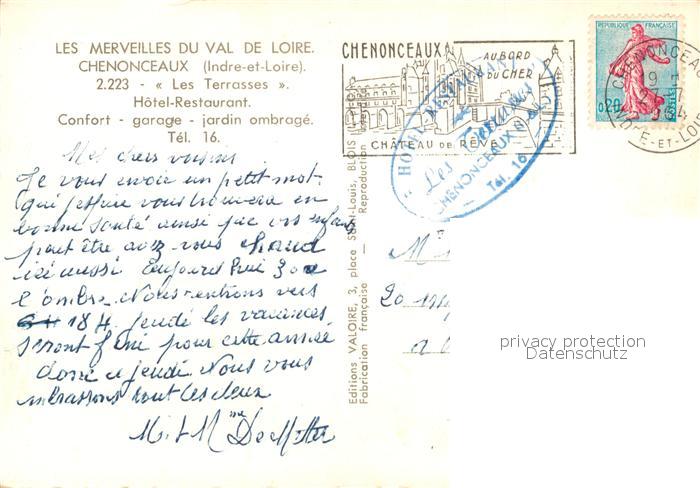 LES MERVEILLES DU VAL DE LOIRE.
CHENONCEAUX (Indre-et-Loire).
2.223 - « Les Terrasses ».
Hôtel-Restaurant.
Confort - garage - jardin ombragé.
Tél. 16.
Mes chers voisins
Je vous envoie un petit mot
qui j'espère vous trouvera en
bonne santé ainsi que vos enfants
peut être avez vous chaud
ici aussi Aujourd'hui 30
l'ombre. Nous rentrons vers
18 h. jeudi les vacances
seront fini pour cette année
donc a jeudi Nous vous
embrassons tout les deux
M. et Mme
Editions VALOIRE, 3, place Saint-Louis, BLOIS
Fabrication française — Reproduction
CHENONCEAUX
AU BORD
DU CHER
CHÂTEAU DE RÊVE
HOTEL RESTAURANT
Les Terrasses
CHENONCEAUX
Tél. 16
REPUBLIQUE FRANÇAISE
0,20
POSTES
CHENONCEAUX
INDRE-ET-LOIRE
M
20
a
privacy protection
Datenschutz